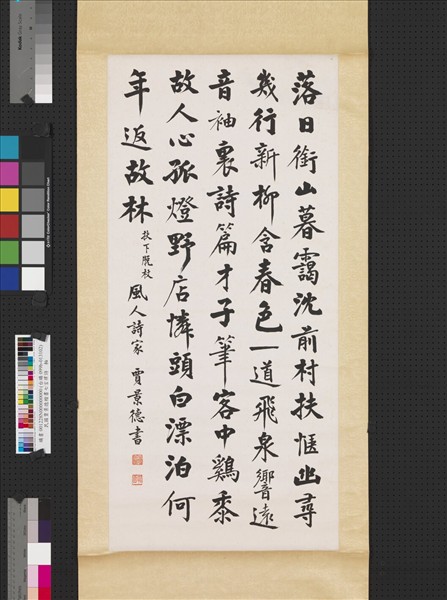 落日銜山暮靄沈前村扶愜幽尋
幾行新柳含春色一道飛泉響遠
音袖裏詩篇才子筆客中鷄黍
故人心孤燈野店憐頭白漂泊何
年返故林
風人詩家 賈景德書